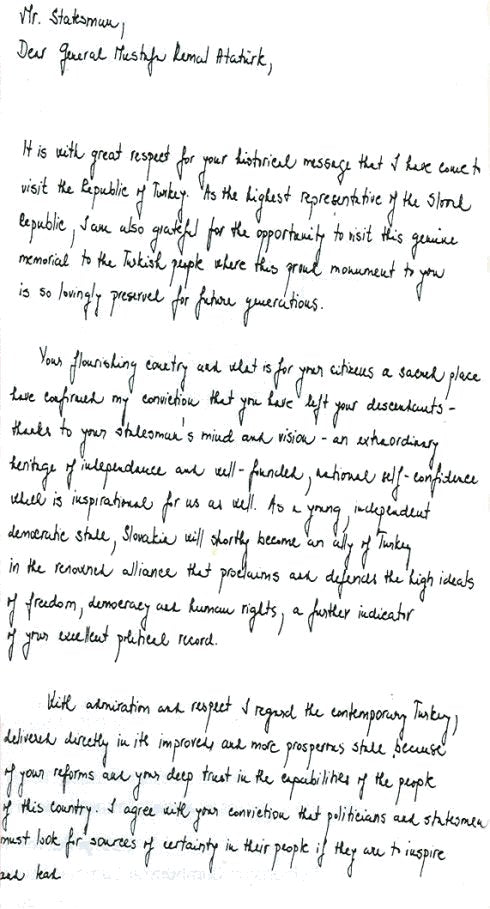 Mr. Statesman,
Dear General Mustafa Kemal Atatürk,
It is with great respect for your historical message that I have come to
visit the Republic of Turkey. As the highest representative of the Slovak
Republic, I am also grateful for the opportunity to visit this genuine
memorial to the Turkish people where this proud monument to you
is so lovingly preserved for future generations.
Your flourishing country and what is for your citizens a sacred place
have confirmed my conviction that you have left your descendants -
thanks to your statesman's mind and vision - an extraordinary
heritage of independence and well-founded, national self-confidence
which is inspirational for us as well. As a young, independent
democratic state, Slovakia will shortly become an ally of Turkey
in the renowned alliance that proclaims and defends the high ideals
of freedom, democracy and human rights, a further indicator
of your excellent political record.
With admiration and respect I regard the contemporary Turkey,
delivered directly in its improved and more prosperous state because
of your reforms and your deep trust in the capabilities of the people
of this country. I agree with your conviction that politicians and statesmen
must look for sources of certainty in their people if they are to inspire
and lead